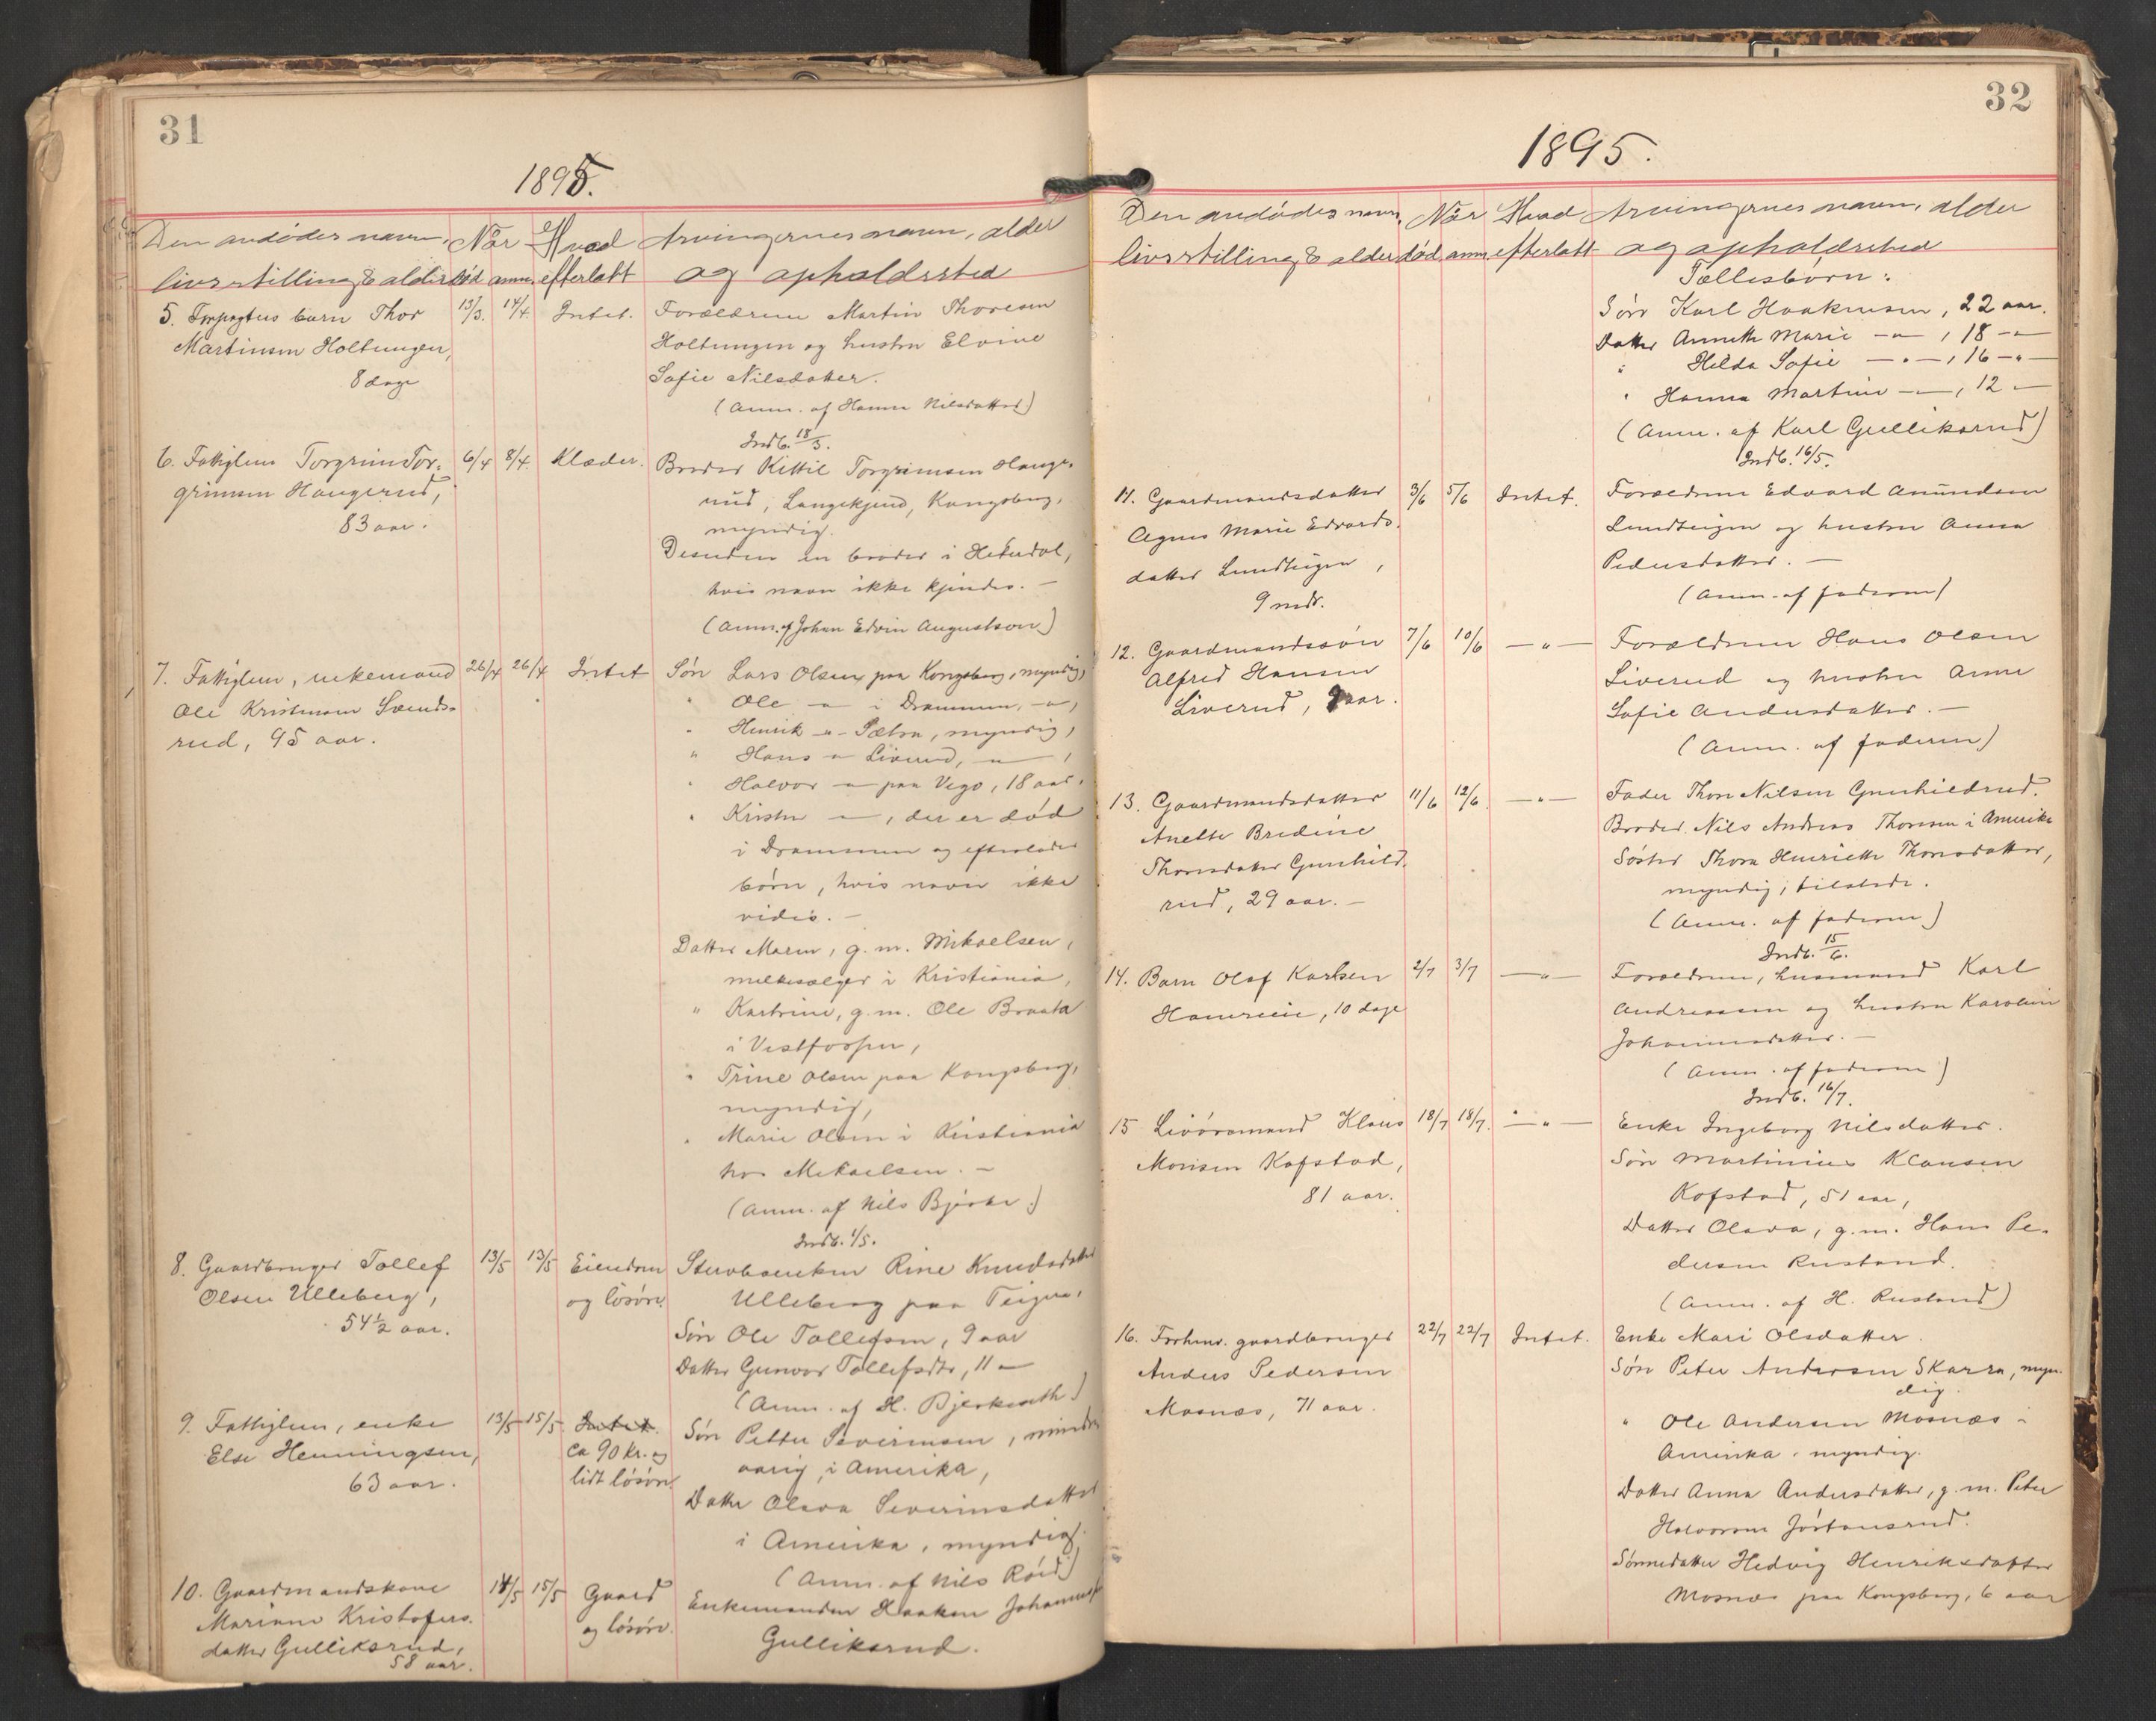 31
1895.
Den avdødes navn, Når Hvad Arvingernes navn, alder
livsstilling & alder død anm. efterlatt og opholdssted
5. Forpagters barn Thor 13/3. 14/4. Intet. Forældrene Martin Thoresen
Martinsen Holtungen, Holtungen og hustru Elvine
8 dage Sofie Nilsdatter.
(Anm. af Hanna Nilsdatter)
Indb. 18/3.
6. Fattiglem Torgrim Tor- 6/4 8/4. Klæder. Broder Kittil Torgrimsen Hauge-
grimsen Haugerud, rud, Langekjend, Kongsberg,
83 aar. myndig.
Desuden en broder i Hiterdal,
hvis navn ikke kjendes. —
(Anm. af Johan Edvin Augustson)
7. Fattiglem, enkemand 26/4 26/4 Intet Søn Lars Olsen paa Kongsberg, myndig,
Ole Kristensen Svends- " Ole — " — i Drammen, — " —,
rud, 95 aar. " Henrik — " — Sætra, myndig,
" Hans — " — Liverud, — " — ,
" Halvor — " — paa Vego, 18 aar.
" Kristen — " —, der er død
i Drammen og efterlader
børn, hvis navn ikke
vides. —
Datter Maren, g. m. Mikaelsen,
melkesælger i Kristiania,
" Kartrine, g. m. Ole Braata
i Vestfossen,
" Trine Olsen paa Kongsberg,
myndig,
" Marie Olsen i Kristiania
hos Mikaelsen. —
(Anm. af Nils Bjørke.)
Indb. 1/5.
8. Gaardbruger Tollef 13/5 13/5 Eiendom Stervboenken Rine Knudsdatter
Olsen Ulleberg, og løsøre. Ulleberg paa Teigen,
54½ aar. Søn Ole Tollefsen, 9 aar
Datter Gunvor Tollefsdtr, 11 —
(Anm. af H. Bjerknæth)
9. Fattiglem, enke 13/5 15/5. Intet. Søn Petter Severinsen, minder
Else Henningsen, ca 90 kr. og aarig, i Amerika,
63 aar. lidt løsøre Datter Olava Severinsdatter
i Amerika, myndig.
(Anm. af Nils Røed)
10. Gaardmandskone 14/5 15/5 Gaard Enkemanden Haaken Johannes
Mariane Kristofers- og løsøre. Gulliksrud.
datter Gulliksrud,
58 aar.
32
1895.
Den avdødes navn, Når Hvad Arvingernes navn, alder
livsstilling & alder død anm efterlatt og opholdssted
Fællesbørn:
Søn Karl Haakensen, 22 aar.
Datter Annette Marie — " — , 18 — " —
" Hilda Sofie — " — , 16 — " —
" Hanna Martine — " — , 12 —
(Anm. af Karl Gulliksrud)
Indb. 16/5.
11. Gaardmandsdatter 3/6 5/6 Intet. Forældrene Edvard Amundsen
Agnes Marie Edvards- Lundteigen og hustru Anna
datter Lundteigen, Pedersdatter. —
9 mdr. (Anm. af faderen)
12. Gaardmandssøn 7/6 10/6 — " — Forældrene Hans Olsen
Alfred Hansen Liverud og hustru Anne
Liverud, aar. Sofie Andersdatter. —
(Anm. af faderen)
13. Gaardmandsdatter 11/6 12/6. — " — Fader Thor Nilsen Gunhildrud.
Anette Bredine Broder Nils Andreas Thoresen i Amerika
Thorsdatter Gunhild- Søster Thora Henriette Thorsdatter,
rud, 29 aar. — myndig, tilstede.
(Anm. af faderen)
Indb. 15/6.
14. Barn Olaf Karlsen 2/7 3/7 — " — Forældrene, husmand Karl
Hamreeie, 10 dage Andreassen og hustru Karoline
Johannesdatter. —
(Anm. af faderen)
Indb. 16/7.
15 Livøremand Klaus 18/7 18/7. — " — Enke Ingeborg Nilsdatter.
Monsen Kofstad, Søn Martinius Klausen
81 aar. Kofstad, 51 aar,
Datter Olava, g. m. Hans Pe-
dersen Rustand.
(Anm. af H. Rustand)
16. Forhenv. gaardbruger 22/7 22/7 Intet. Enke Mari Olsdatter.
Anders Pedersen Søn Peter Andersen Skarra, myn-
Mosnæs, 71 aar. dig.
" Ole Andersen Mosnæs i
Amerika, myndig.
Datter Anna Andersdatter, g. m. Peter
Halvorsen Jørtansrud.
Sønnedatter Hedvig Henriksdatter
Mosnæs paa Kongsberg, 6 aar